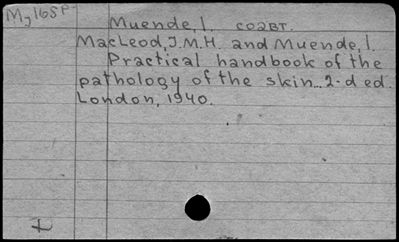 My168P
Muende, I. CO2BT.
MacLeod, J.M.H. and Muende, I.
Practical handbook of the
pathology of the skin... 2-d ed.
London, 1940.